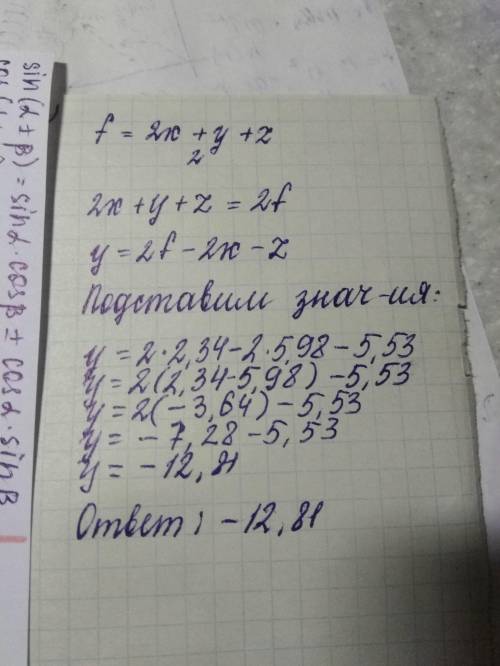 f = 2x + y + z
2
2x + y + z = 2f
y = 2f - 2x - z
Подставим знач-ия:
y = 2·2,34 - 2·5,98 - 5,53
y = 2(2,34-5,98) - 5,53
y = 2(-3,64) - 5,53
y = -7,28 - 5,53
y = -12,81
Ответ: -12,81
sin(α ± β) = sinα·cosβ ± cosα·sinβ